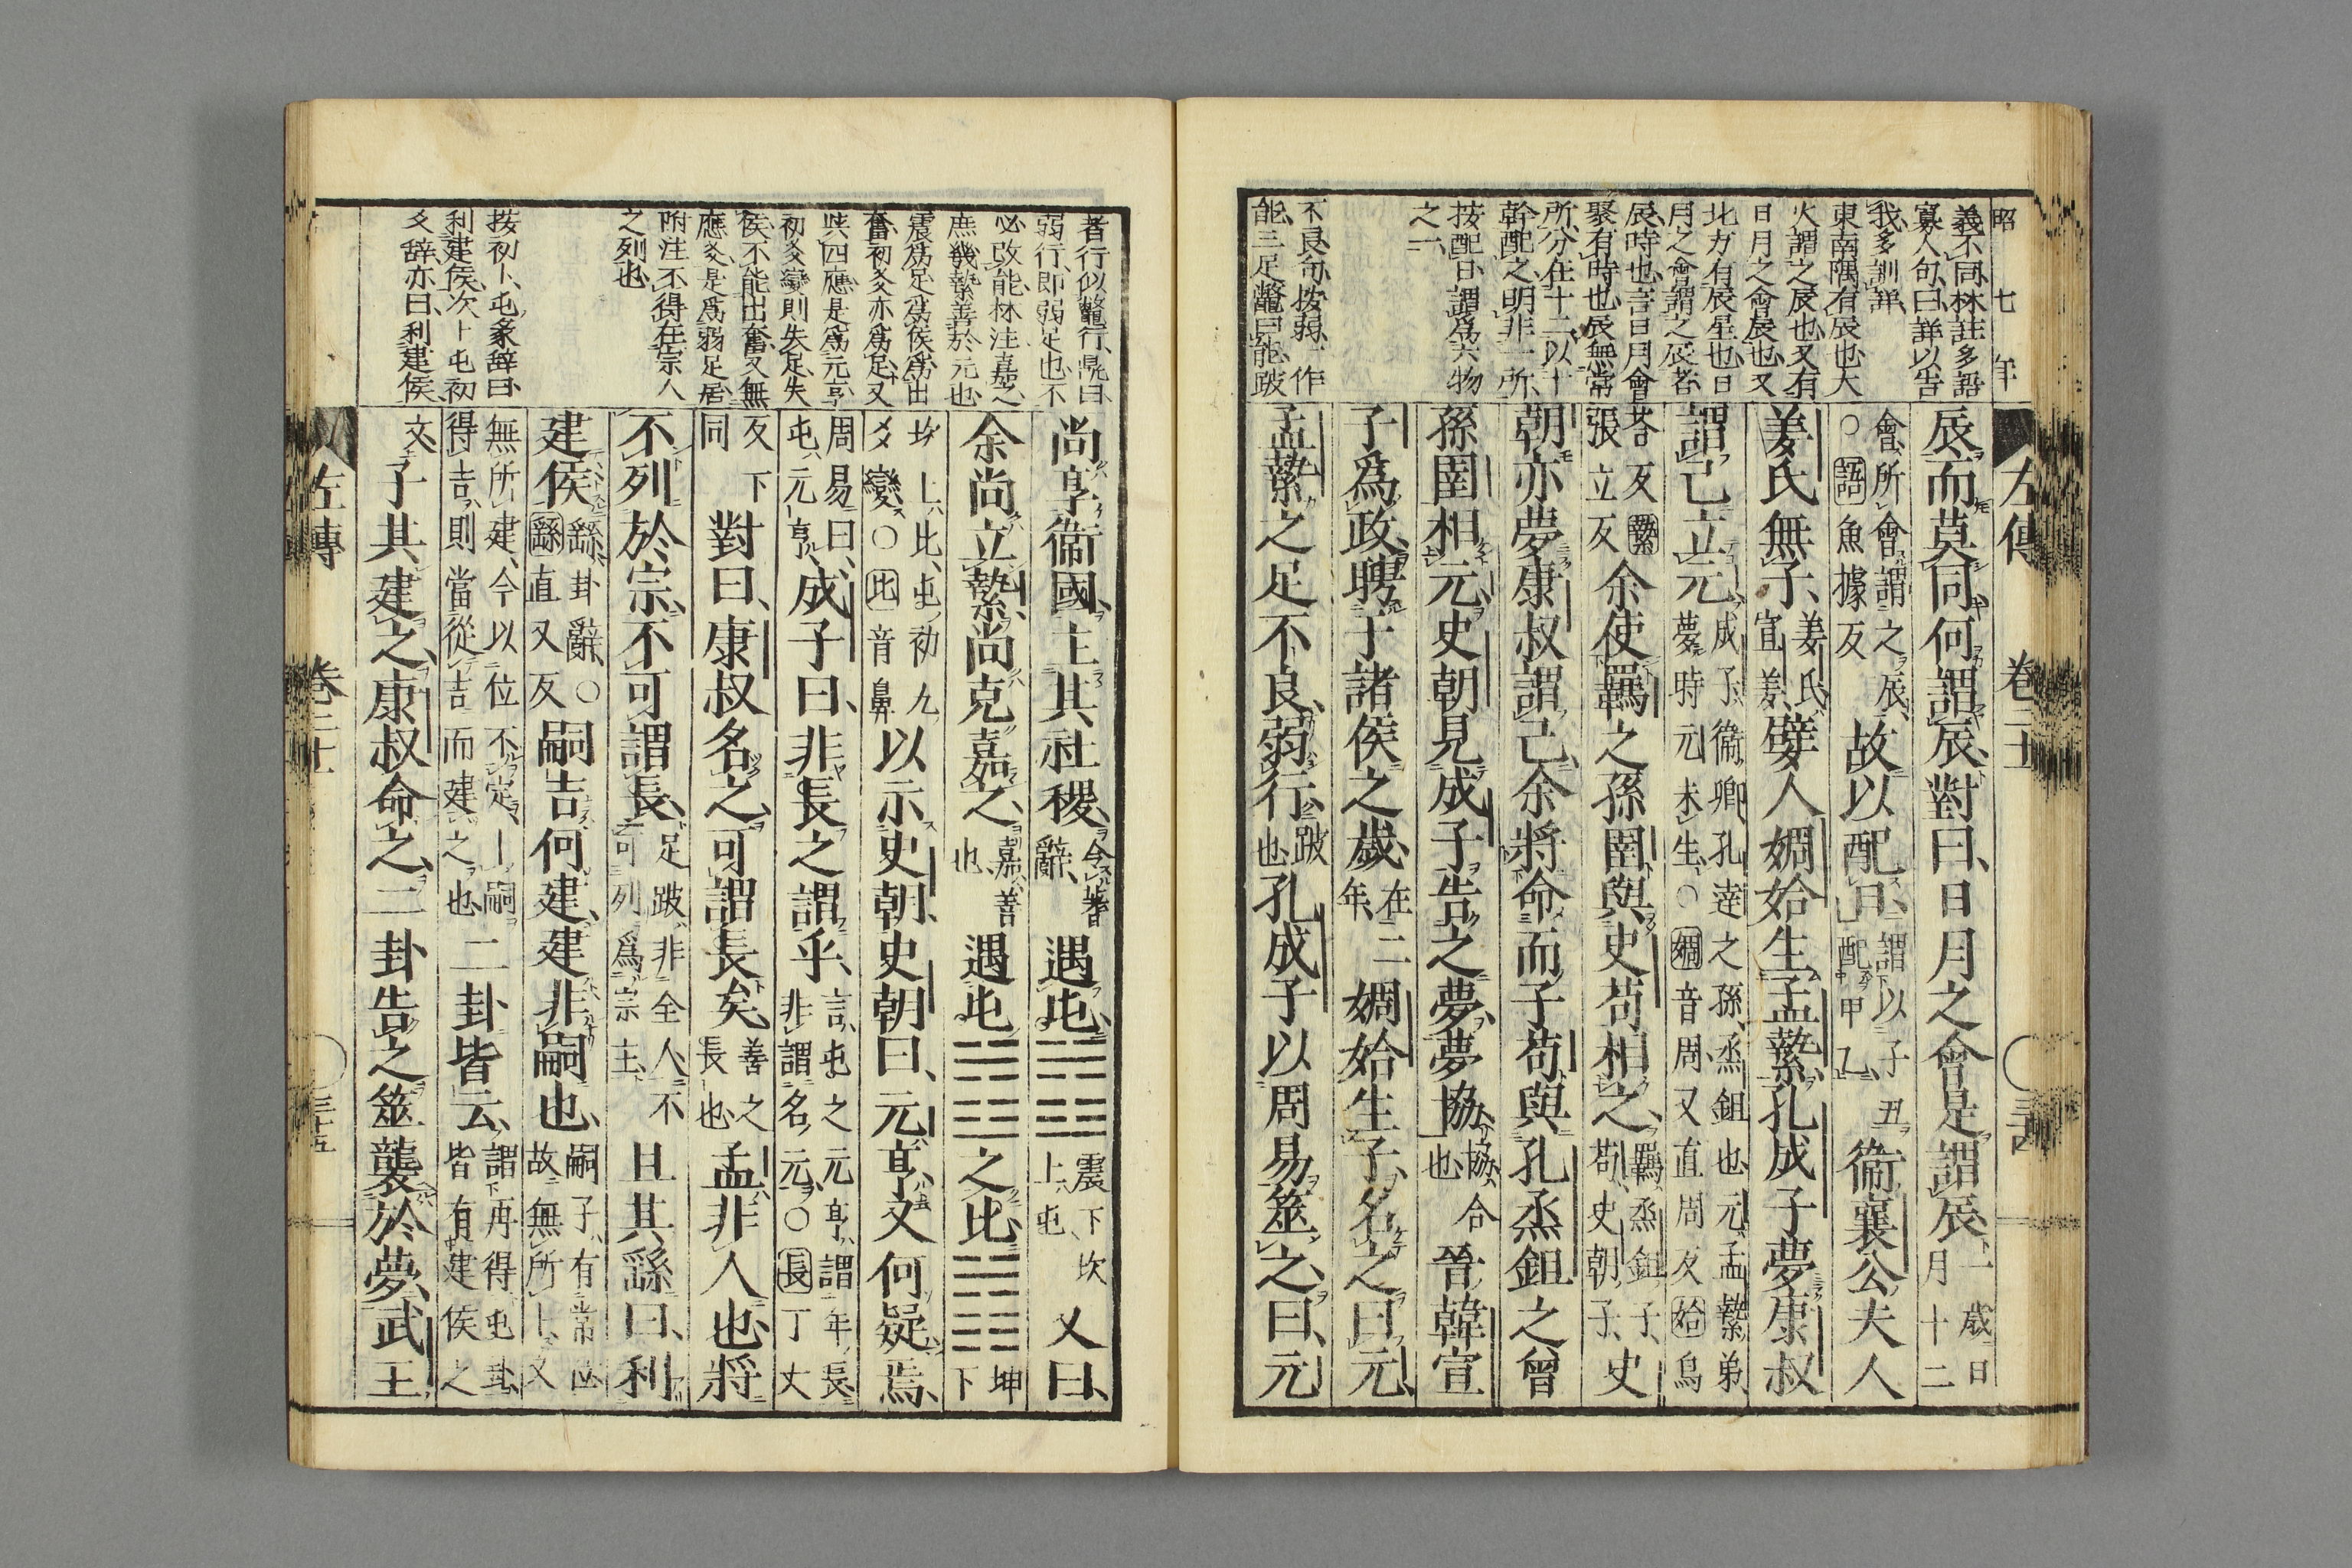 昭七年
義不同林註多語
寡人句曰詳以告
我多訓詳
東南隅有辰也大
火謂之辰也又有
日月之會辰也又
北方有辰星也日
月之會謂之辰者
辰時也言日月會
聚有時也辰無常
所分在十二以十
幹配之明非一所
按配日謂爲六物
之一
不良句按弱一作
能三足鼈曰能跛
左傳 卷二十
辰而莫同何謂辰對曰日月之會是謂辰一歲日月十二
會所會謂之辰○語魚據反故以配日謂以子丑配甲乙衞襄公夫人
姜氏無子姜氏宣姜嬖人婤姶生孟縶孔成子夢康叔
謂己立元成子衞卿孔達之孫烝鉏也元孟縶弟夢時元未生○婤音周又直周反姶烏
荅反縶張立反余使羈之孫圉與史苟相之羈烝鉏子苟史朝子史
朝亦夢康叔謂己余將命而子苟與孔烝鉏之曾
孫圉相元史朝見成子告之夢夢協協合也晉韓宣
子爲政聘于諸侯之歲在二年婤姶生子名之曰元
孟縶之足不良弱行跛也孔成子以周易筮之曰元
者行似鼈行鼎曰
弱行卽弱足也不
必改能林注嘉之
庶幾縶善於元也
震爲足爲侯爲出
奮初爻亦爲足又
與四應是爲元亨
初爻變則失足失
侯不能出奮又無
應爻是爲弱足居
附注不得在宗人
之列也
按初卜屯彖辭曰
利建侯次卜屯初
爻辭亦曰利建侯
尚享衞國主其社稷令蓍辭遇屯䷂震下坎上屯又曰
余尚立縶尚克嘉之嘉善也遇屯䷂之比䷇坤下
坎上比屯初九爻變○比音鼻以示史朝史朝曰元亨又何疑焉
周易曰屯元亨成子曰非長之謂乎言屯之元亨謂年長非謂名元○長丁丈
反下同對曰康叔名之可謂長矣善之長也孟非人也將
不列於宗不可謂長足跛非全人不可列爲宗主且其繇曰利
建侯繇卦辭○繇直又反嗣吉何建建非嗣也嗣子有常位故無所卜又
無所建今以位不定卜嗣得吉則當從吉而建之也二卦皆云謂再得屯卦皆有建侯之
文子其建之康叔命之二卦告之筮襲於夢武王
左傳 卷二十 三十五